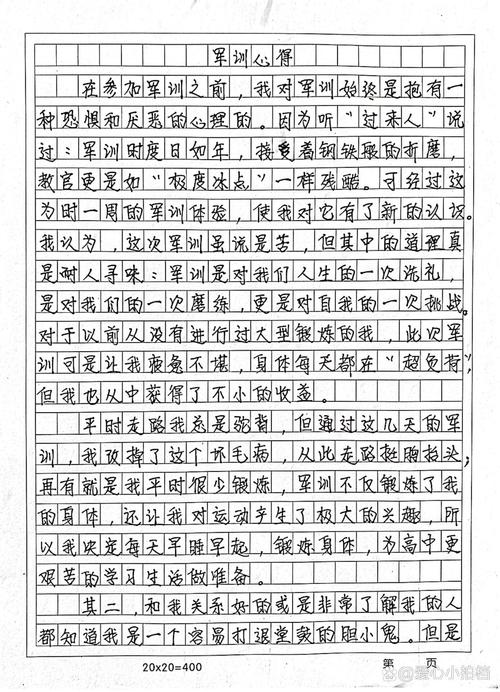 军训心得
在参加军训之前，我对军训始终是抱有一
种恐惧和厌恶的心理的。因为听“过来人”说
过：军训时度日如年，接受着钢铁般的折磨，
教官更是如“极度冰点”一样残酷。可经过这
为时一周的军训体验，使我对它有了新的认识。
我认为，这次军训虽说是苦，但其中的道理真
是耐人寻味：军训是对我们人生的一次洗礼，
是对我们的一次磨练，更是对自我的一次挑战。
对于以前从没有进行过大型锻炼的我，此次军
训可是让我疲惫不堪，身体每天都在“超负荷”，
但我也从中获得了不小的收益。
平时走路我总是弯背，但通过这几天的军
训，我改掉了这个坏毛病，从此走路挺胸抬头；
再有就是我平时很少锻炼，军训不仅锻炼了我
的身体，还让我对运动产生了极大的兴趣，所
以我决定每天早睡早起，锻炼身体，为高中更
艰苦的学习生活做准备。
其二，和我关系好的或是非常了解我的人
都知道我是一个容易打退堂鼓的胆小鬼。但是
20×20=400
第 页
爱心小铂档